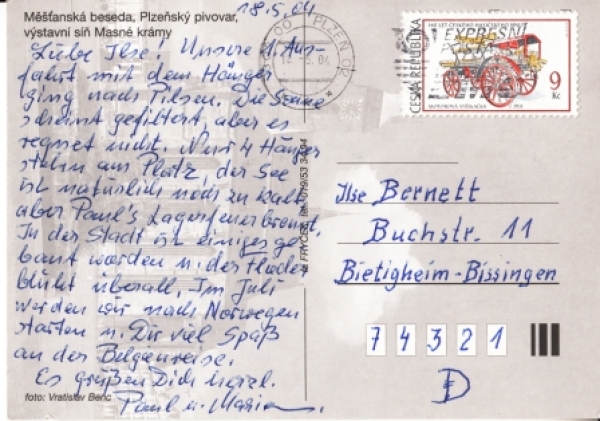 Měšťanská beseda, Plzeňský pivovar,
výstavní síň Masné krámy
18.5.04
Liebe Ilse! Unsere 1. Aus-
fahrt mit dem Hänger
ging nach Pilsen. Die Sonne
scheint gefiltert, aber es
regnet nicht. Nur 4 Hänger
stehn am Platz, der See
ist natürlich noch zu kalt
aber Paul's Lagerfeuer brennt.
In der Stadt ist einiges ge
baut worden u. der Flieder
blüht überall. Im Juli
werden wir nach Norwegen
starten u. Dir viel Spaß
an der Belgienreise.
Es grüßen Dich herzl.
Paul u. Maria
foto: Vratislav Benc
PLZEŇ
EXPRESNÍ
ČESKÁ REPUBLIKA
9
Kč
Ilse Bernett
Buchstr. 11
Bietigheim-Bissingen
74321
D